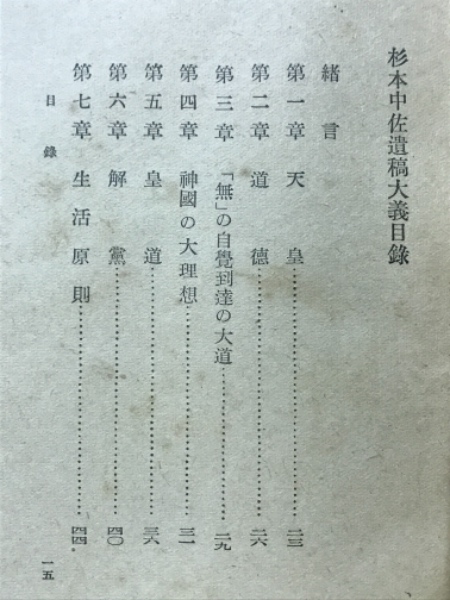 杉本中佐遺稿大義目錄
緒言
第一章 天皇………二三
第二章 道德………二六
第三章 「無」の自覺到達の大道………二九
第四章 神國の大理想………三一
第五章 皇道………三六
第六章 解黨………四〇
第七章 生活原則………四四
目錄
一五